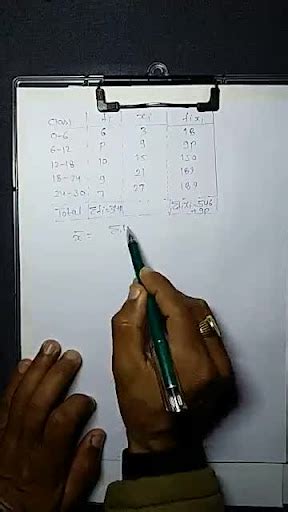 Class fi xi fixi
0-6 6 3 18
6-12 P 9 9P
12-18 10 15 150
18-24 9 21 189
24-30 7 27 189
Total Σfi= Σfixi=546
+9P
x̄ = Σ